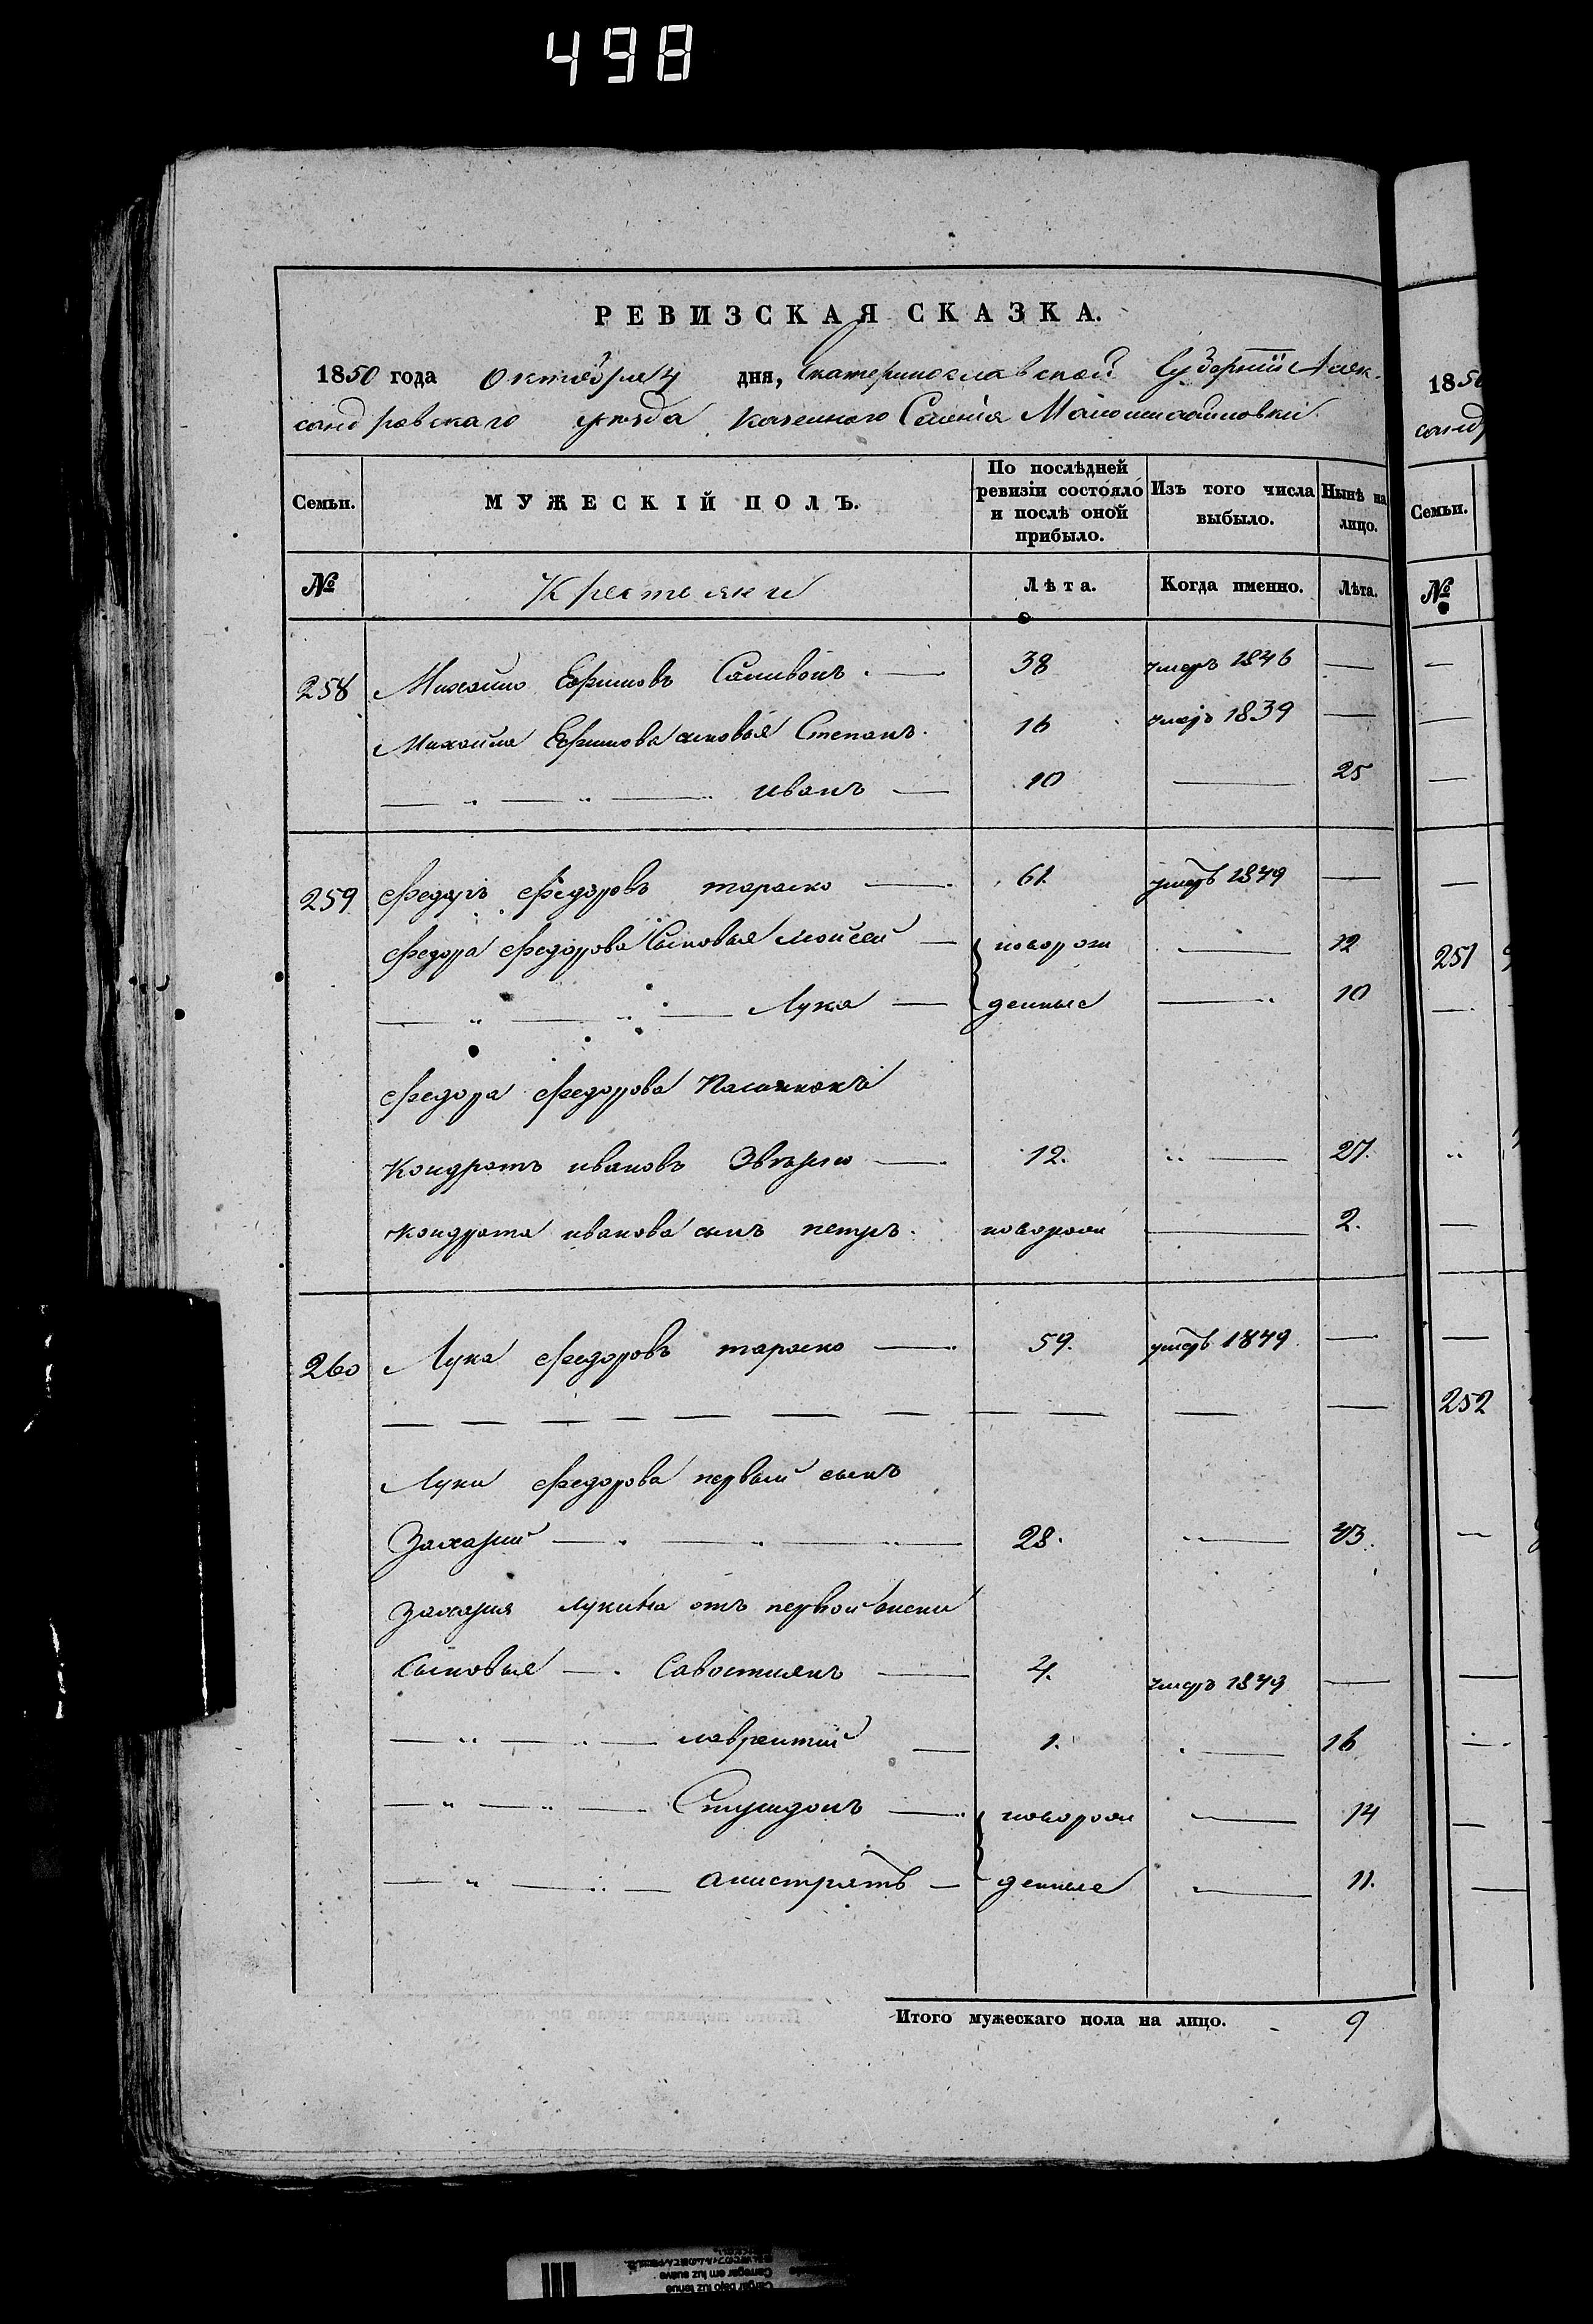 498
РЕВИЗСКАЯ СКАЗКА.
1850 года Октября 4 дня, Екатеринославской Губернiи Алек-
сандровскаго уѣзда Казеннаго Селенiя
Семьи. МУЖЕСКIЙ ПОЛЪ. По послѣдней ревизiи состояло и послѣ оной прибыло. Изъ того числа выбыло. Нынѣ на лицо.
№ Крестьяне Лѣта. Когда именно. Лѣта.
258 Михайло Ефимовъ 38 умеръ 1846 —
Михайла Ефимова сыновья Степанъ. 16 умеръ 1839 —
— „ — „ — Иванъ — 10 — 25
259 Федоръ Федоровъ тараско — 61. умеръ 1849 —
Федора Федорова Сыновья Моисей — новорож — 12
— „ — „ — Лука — денные — 10
Федора Федорова Пасынокъ
Кондратъ ивановъ — 12. „ — 27.
Кондрата иванова сынъ петръ. новорож — 2.
260 Лука Федоровъ тараско — 59. умеръ 1849 —
— — — — — — — — — — —
Луки Федорова первый сынъ
Захарий — „ — „ — „ — 28. „ — 43.
Захария Лукина отъ первой жены
Сыновья — Савостиянъ — 4. умеръ 1849 —
— „ — „ — лаврентий — 1. „ — 16
— „ — „ — — новорож — 14
— „ — „ — — денные — 11.
Итого мужескаго пола на лицо. 9
185
санд
Семьи.
№
251
252